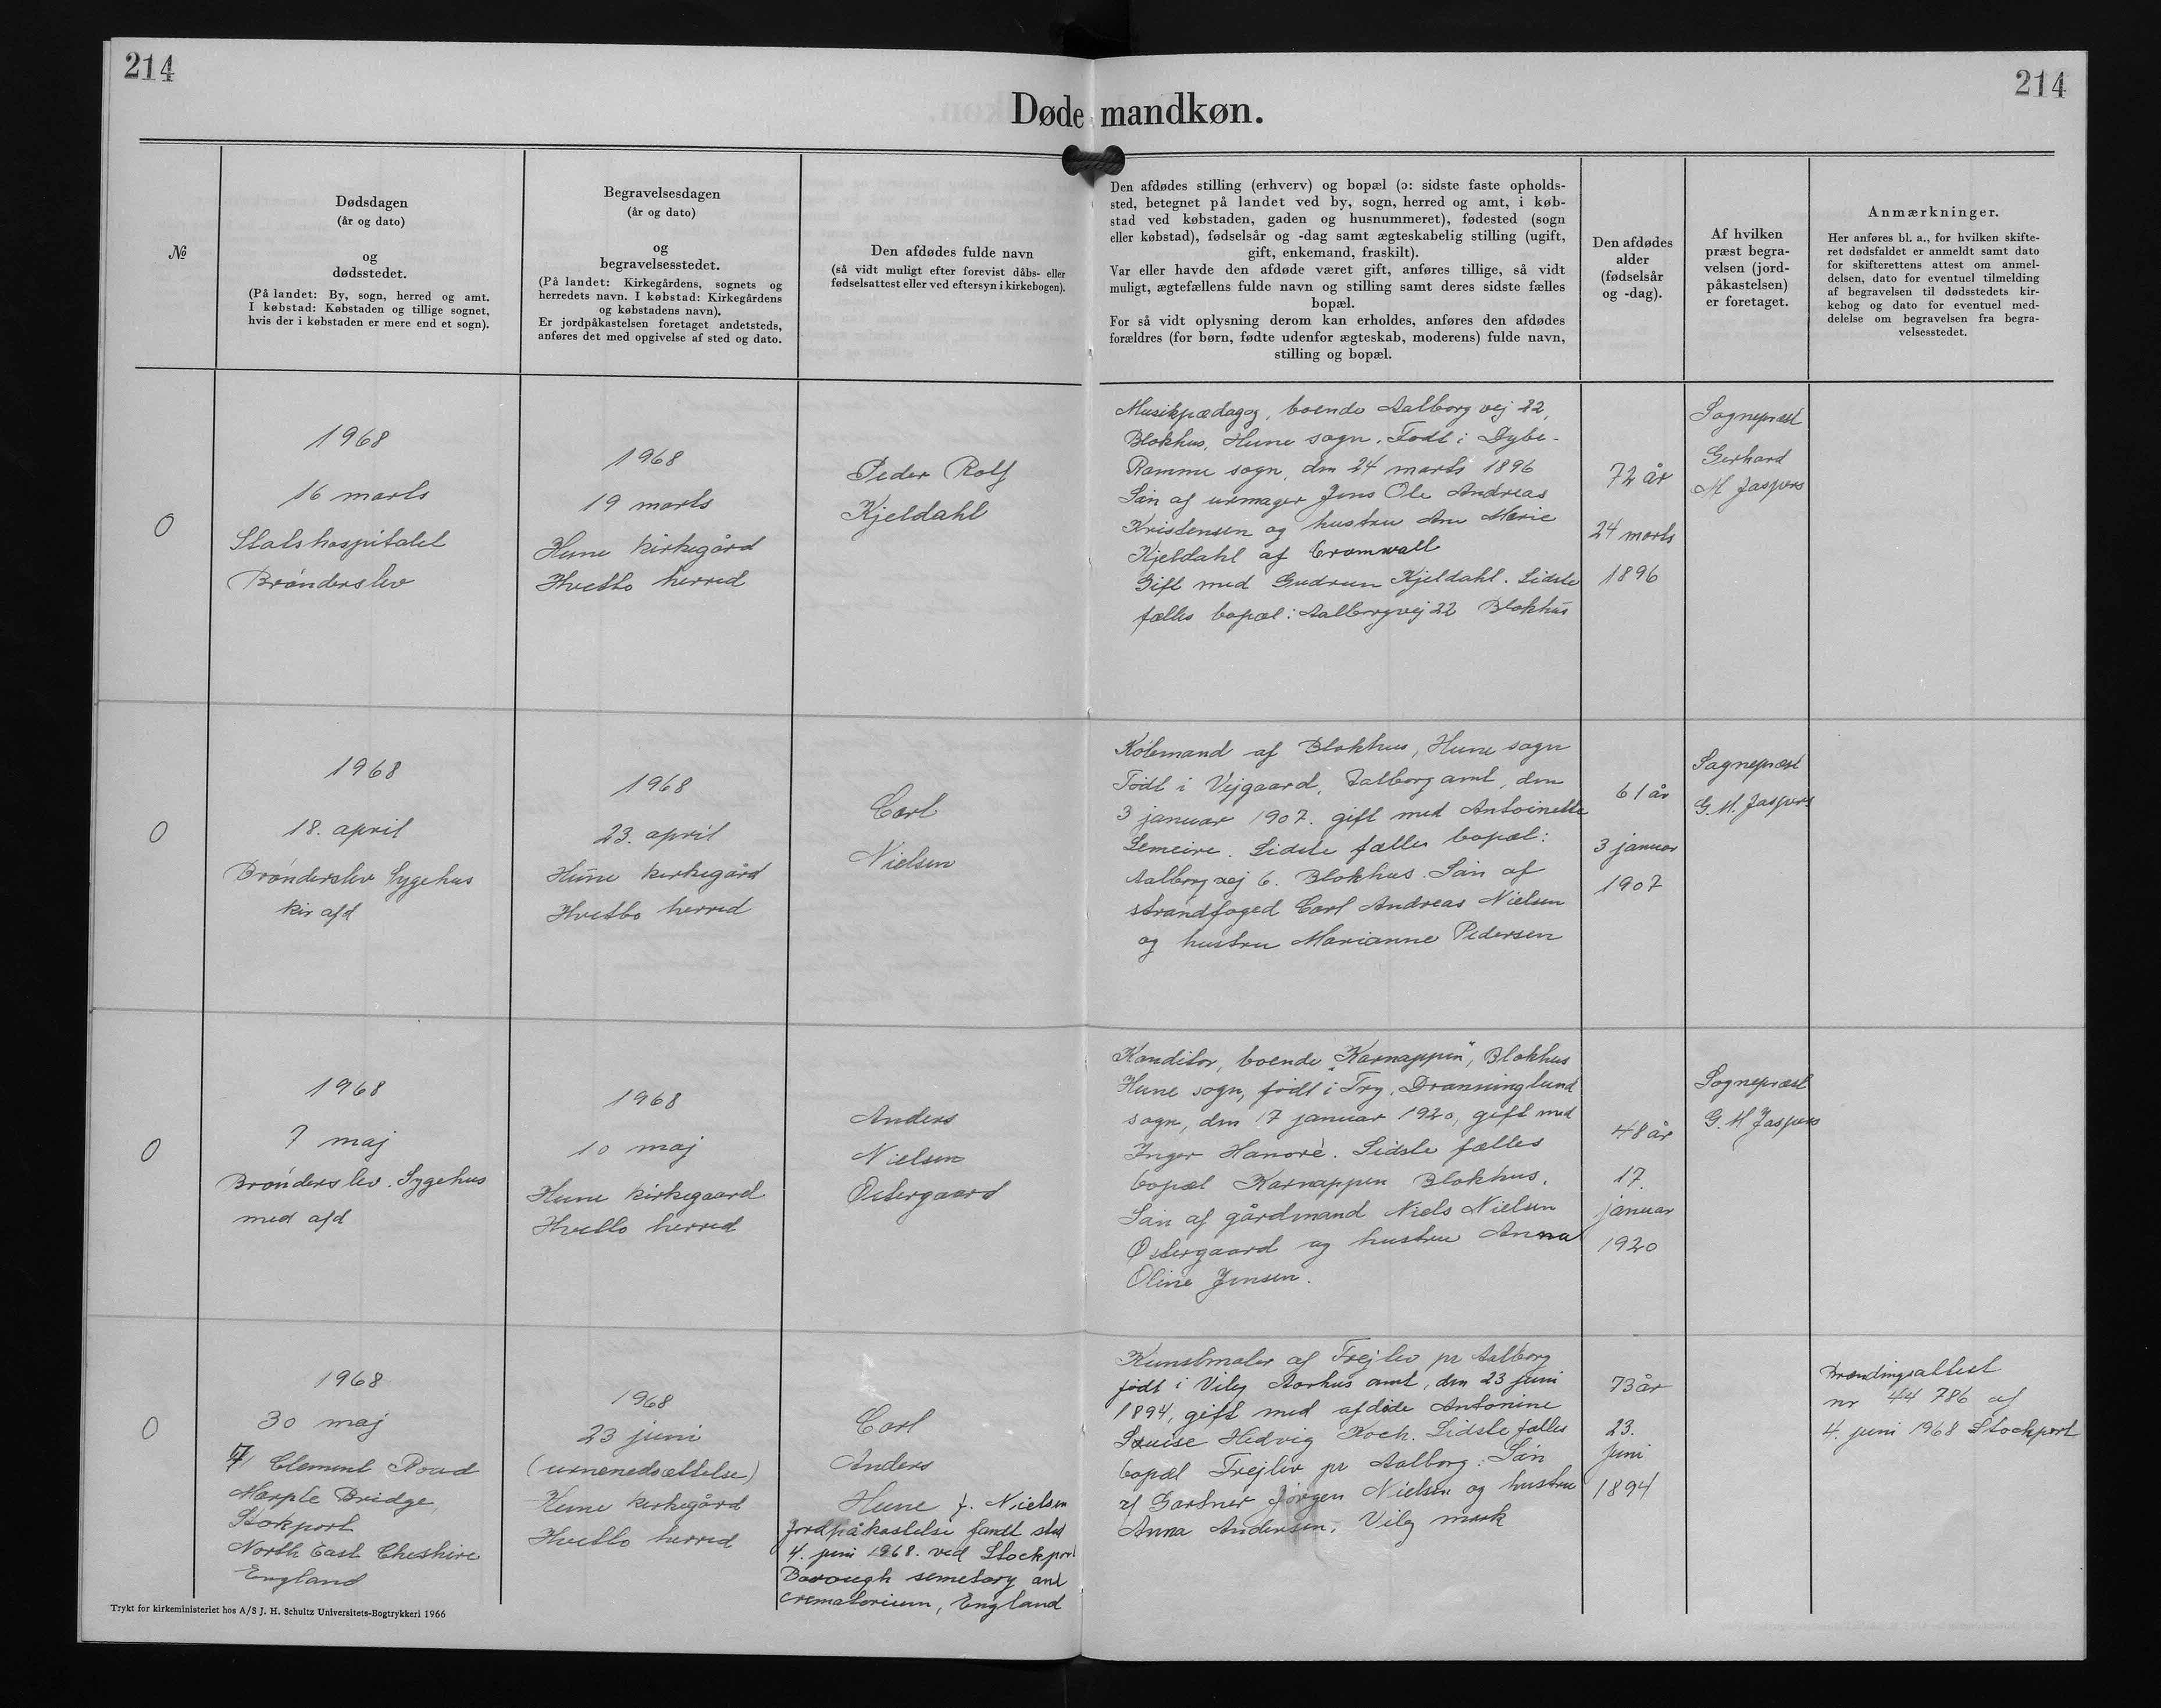 214
214
Døde mandkøn.
№
Dødsdagen
(år og dato)
og
dødsstedet.
(På landet: By, sogn, herred og amt.
I købstad: Købstaden og tillige sognet,
hvis der i købstaden er mere end et sogn).
Begravelsesdagen
(år og dato)
og
begravelsesstedet.
(På landet: Kirkegårdens, sognets og
herredets navn. I købstad: Kirkegårdens
og købstadens navn).
Er jordpåkastelsen foretaget andetsteds,
anføres det med opgivelse af sted og dato.
Den afdødes fulde navn
(så vidt muligt efter forevist dåbs- eller
fødselsattest eller ved eftersyn i kirkebogen).
Den afdødes stilling (erhverv) og bopæl (ɔ: sidste faste opholds-
sted, betegnet på landet ved by, sogn, herred og amt, i køb-
stad ved købstaden, gaden og husnummeret), fødested (sogn
eller købstad), fødselsår og -dag samt ægteskabelig stilling (ugift,
gift, enkemand, fraskilt).
Var eller havde den afdøde været gift, anføres tillige, så vidt
muligt, ægtefællens fulde navn og stilling samt deres sidste fælles
bopæl.
For så vidt oplysning derom kan erholdes, anføres den afdødes
forældres (for børn, fødte udenfor ægteskab, moderens) fulde navn,
stilling og bopæl.
Den afdødes
alder
(fødselsår
og -dag).
Af hvilken
præst begra-
velsen (jord-
påkastelsen)
er foretaget.
Anmærkninger.
Her anføres bl. a., for hvilken skifte-
ret dødsfaldet er anmeldt samt dato
for skifterettens attest om anmel-
delsen, dato for eventuel tilmelding
af begravelsen til dødsstedets kir-
kebog og dato for eventuel med-
delelse om begravelsen fra begra-
velsesstedet.
0
1968
16 marts
Statshospitalet
Brønderslev
1968
19 marts
Hune kirkegård
Hvetbo herred
Peder Rolf
Kjeldahl
Musikpædagog, boende Aalborgvej 22,
Blokhus, Hune sogn. Født i Dybe-
Ramme sogn, den 24 marts 1896
Søn af urmager Jens Ole Andreas
Kristensen og hustru Ane Marie
Kjeldahl af Cromwall
Gift med Gudrun Kjeldahl. Sidste
fælles bopæl: Aalborgvej 22 Blokhus
72 år
24 marts
1896
Sognepræst
Gerhard
M Jaspers
0
1968
18. april
Brønderslev Sygehus
kir afd
1968
23. april
Hune kirkegård
Hvetbo herred
Carl
Nielsen
Købmand af Blokhus, Hune sogn
Født i Vejgaard, Aalborg amt, den
3 januar 1907. gift med Antoinette
Lemeire. Sidste fælles bopæl:
Aalborgvej 6. Blokhus. Søn af
strandfoged Carl Andreas Nielsen
og hustru Marianne Pedersen
61 år
3 januar
1907
Sognepræst
G. M. Jaspers
0
1968
7 maj
Brønderslev. Sygehus
med afd
1968
10 maj
Hune kirkegaard
Hvetbo herred
Anders
Nielsen
Østergaard
Konditor, boende „Karnappen", Blokhus
Hune sogn, født i Try, Dronninglund
sogn, den 17 januar 1920, gift med
Inger Hanorè. Sidste fælles
bopæl Karnappen Blokhus.
Søn af gårdmand Niels Nielsen
Østergaard og hustru Anna
Oline Jensen.
48 år
17.
januar
1920
Sognepræst
G. M Jaspers
0
1968
30 maj
Clement Road
Marple Bridge,
Stokport
North East Cheshire
England
1968
23 juni
(urnenedsættelse)
Hune kirkegård
Hvetbo herred
Carl
Anders
Hune f. Nielsen
Jordpåkastelse fandt sted
4. juni 1968. ved Stockport
Borough semetary and
crematorium, England
Kunstmaler af Frejlev pr Aalborg
født i Viby Aarhus amt, den 23 juni
1894, gift med afdøde Antonine
Louise Hedvig Koch. Sidste fælles
bopæl Frejlev pr Aalborg. Søn
af Gartner Jørgen Nielsen og hustru
Anna Andersen, Viby mark
73 år
23.
Juni
1894
Brændingsattest
nr 44 786 af
4. juni 1968 Stockport
Trykt for kirkeministeriet hos A/S J. H. Schultz Universitets-Bogtrykkeri 1966